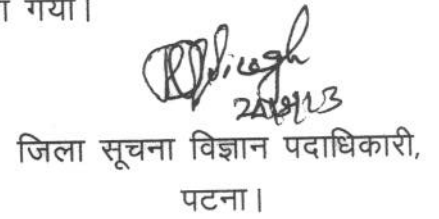 गया।
जिला सूचना विज्ञान पदाधिकारी,
पटना।